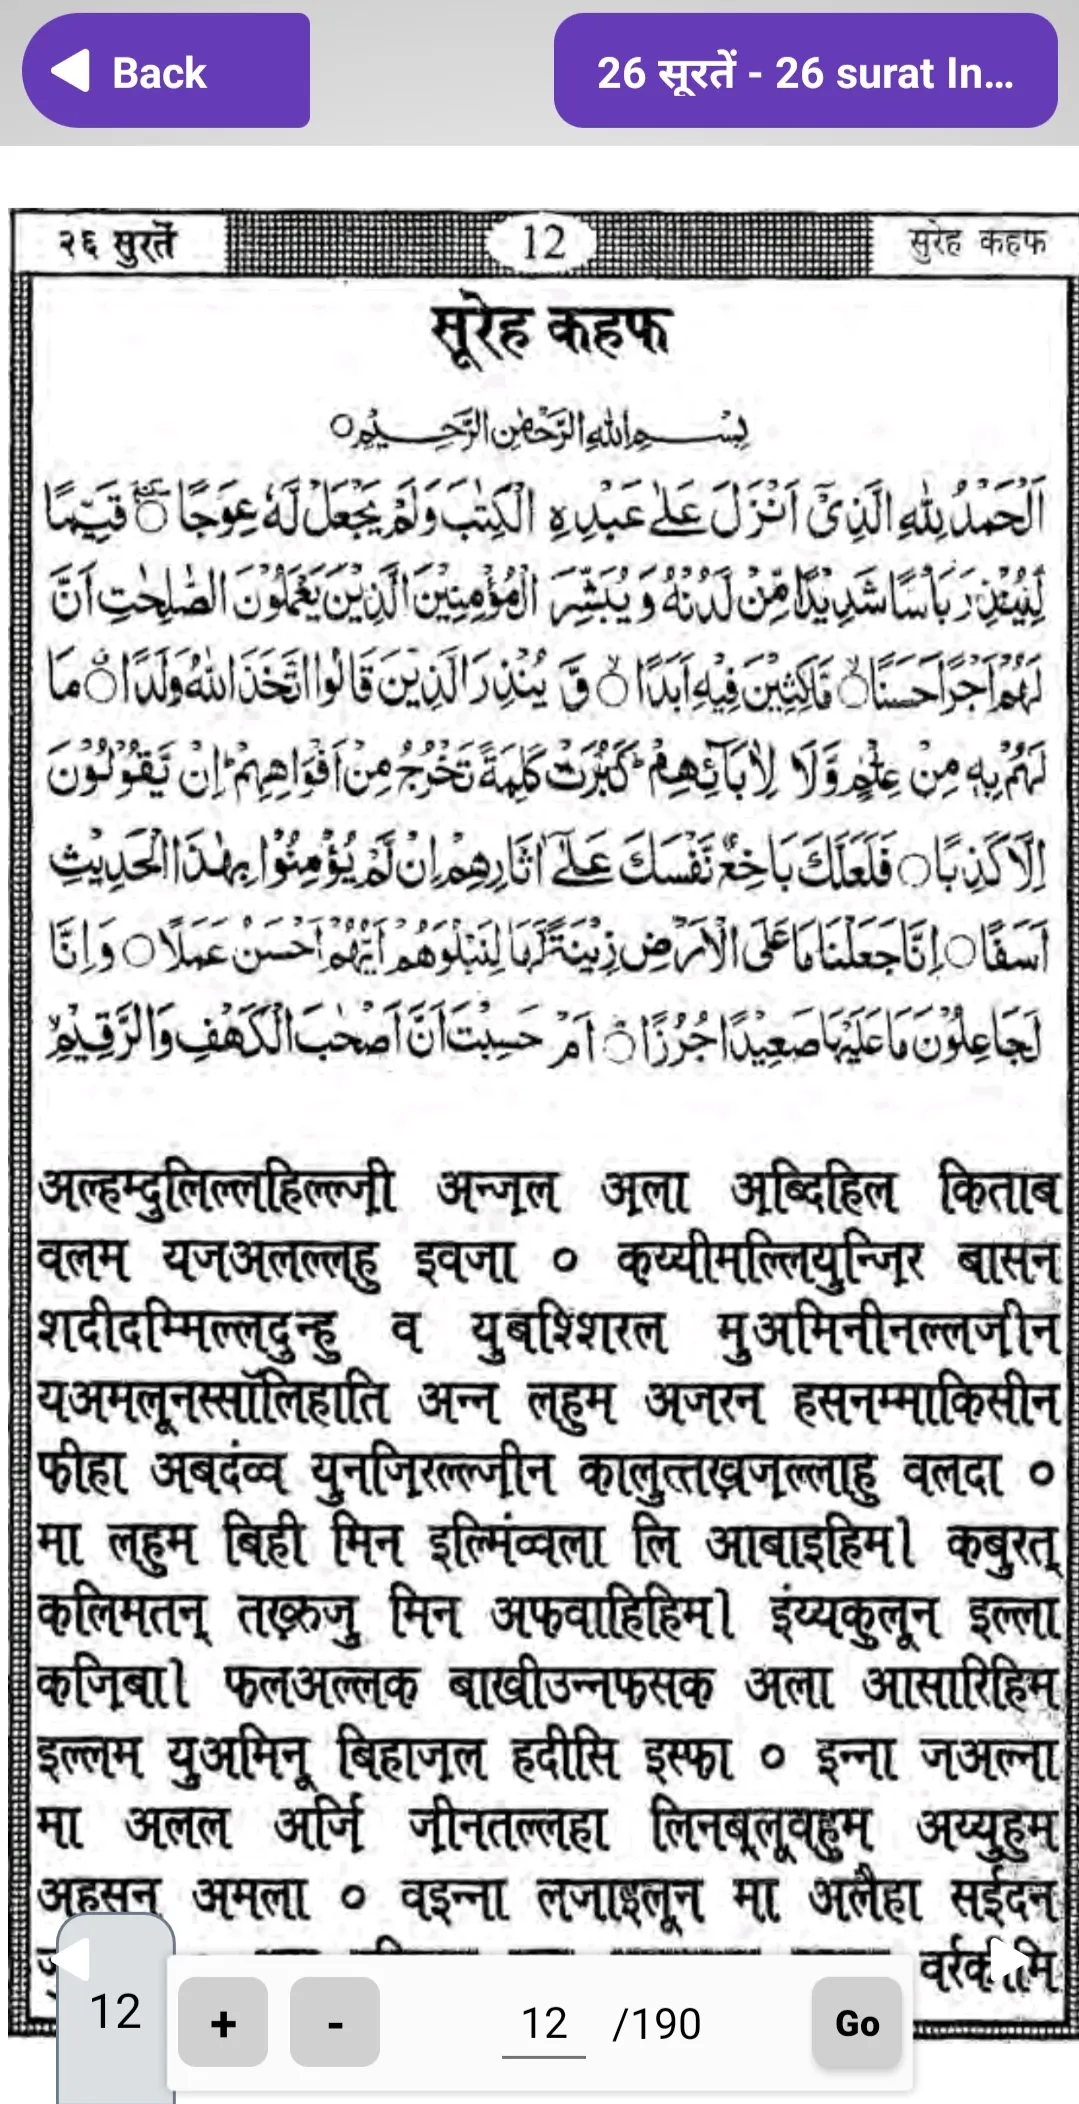 Back
26 सूरतें - 26 surat In...
२६ सुरतें
12
सुरेह कहफ
सूरेह कहफ
بِسْمِ اللهِ الرَّحْمٰنِ الرَّحِيْمِ○
اَلْحَمْدُ لِلّٰهِ الَّذِىْٓ اَنْزَلَ عَلٰى عَبْدِهِ الْكِتٰبَ وَلَمْ يَجْعَلْ لَّهٗ عِوَجًا ○ قَيِّمًا
لِّيُنْذِرَ بَاْسًا شَدِيْدًا مِّنْ لَّدُنْهُ وَ يُبَشِّرَ الْمُؤْمِنِيْنَ الَّذِيْنَ يَعْمَلُوْنَ الصّٰلِحٰتِ اَنَّ
لَهُمْ اَجْرًا حَسَنًا ○ مَّاكِثِيْنَ فِيْهِ اَبَدًا ○ وَّ يُنْذِرَ الَّذِيْنَ قَالُوا اتَّخَذَ اللهُ وَلَدًا ○ مَا
لَهُمْ بِهٖ مِنْ عِلْمٍ وَّلَا لِاٰبَآئِهِمْ ؕ كَبُرَتْ كَلِمَةً تَخْرُجُ مِنْ اَفْوَاهِهِمْ ؕ اِنْ يَّقُوْلُوْنَ
اِلَّا كَذِبًا ○ فَلَعَلَّكَ بَاخِعٌ نَّفْسَكَ عَلٰٓى اٰثَارِهِمْ اِنْ لَّمْ يُؤْمِنُوْا بِهٰذَا الْحَدِيْثِ
اَسَفًا ○ اِنَّا جَعَلْنَا مَا عَلَى الْاَرْضِ زِيْنَةً لَّهَا لِنَبْلُوَهُمْ اَيُّهُمْ اَحْسَنُ عَمَلًا ○ وَاِنَّا
لَجَاعِلُوْنَ مَا عَلَيْهَا صَعِيْدًا جُرُزًا ○ اَمْ حَسِبْتَ اَنَّ اَصْحٰبَ الْكَهْفِ وَالرَّقِيْمِ
अल्हम्दुलिल्लाहिल्लज़ी अन्ज़ल अला अब्दिहिल किताब
वलम यजअलल्लहु इवजा ० कय्यीमल्लियुन्ज़िर बासन
शदीदम्मिल्लदुन्हु व युबश्शिरल मुअमिनीनल्लज़ीन
यअमलूनस्सॉलिहाति अन्न लहुम अजरन हसनम्माकिसीन
फीहा अबदंव्व युनज़िरल्लज़ीन कालुत्तख़ज़ल्लाहु वलदा ०
मा लहुम बिही मिन इल्मिंव्वला लि आबाइहिम। कबुरत्
कलिमतन् तख़्रुजु मिन अफवाहिहिम। इंय्यकुलून इल्ला
कज़िबा। फलअल्लक बाखीउन्नफसक अला आसारिहिम
इल्लम युअमिनू बिहाज़ल हदीसि इस्फा ० इन्ना जअल्ना
मा अलल अर्ज़ि ज़ीनतल्लहा लिनब्लूवहुम अय्युहुम
अहसन अमला ० वइन्ना लजाइलून मा अलैहा सईदन
12
+
-
12 /190
Go